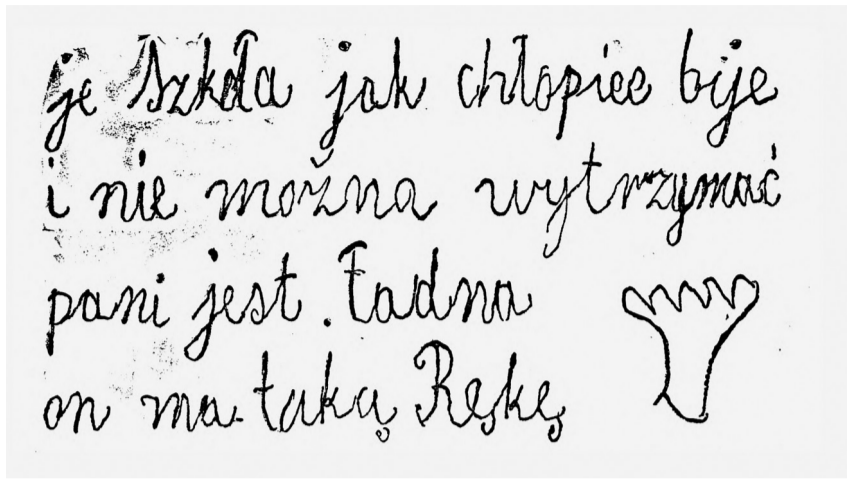 je szkoła jak chłopiec bije
i nie można wytrzymać
pani jest . Ładna
on ma taką Rękę